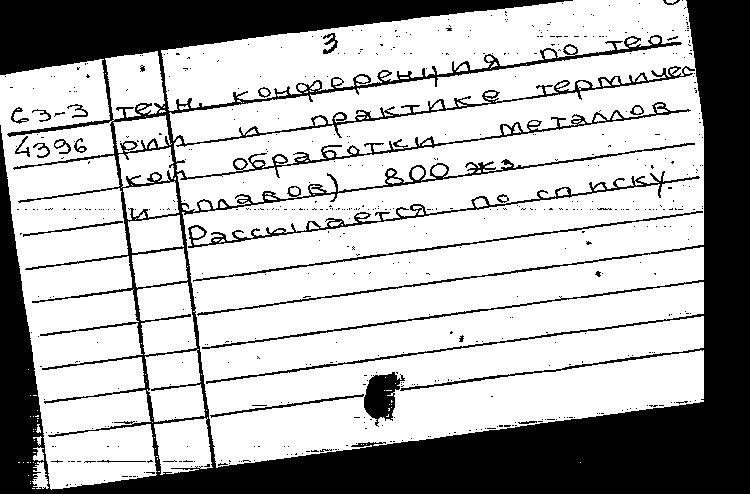 3
63-3 техн. конференция по тео-
4396 рии и практике термичес
кой обработки металлов
и сплавов) 800 экз.
Рассылается по списку.